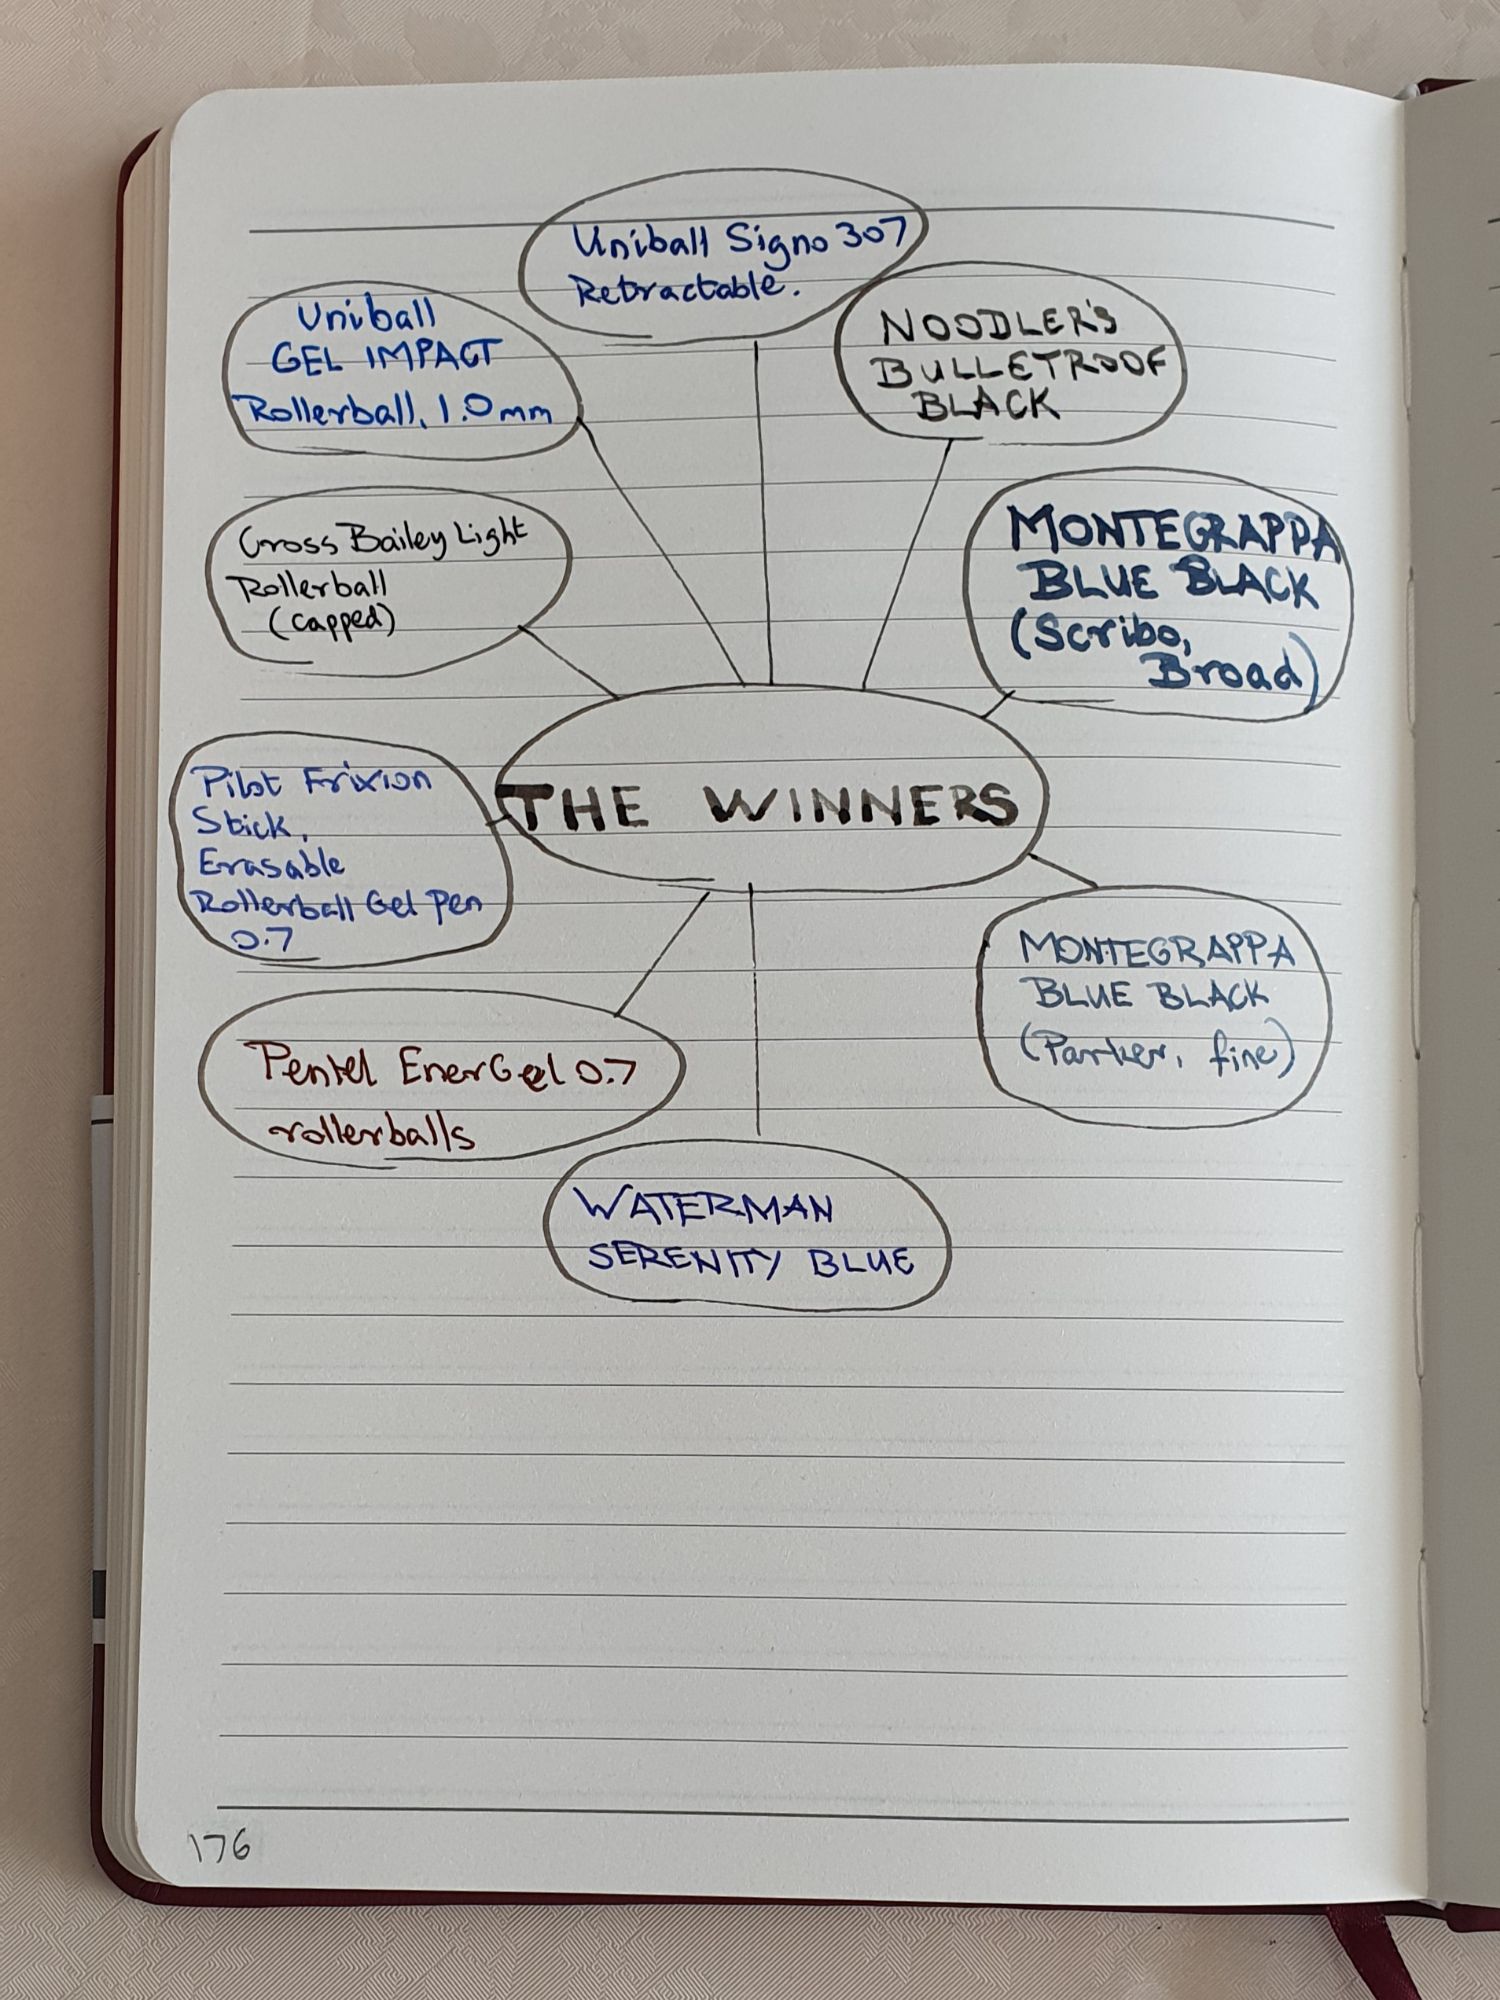 Uniball Signo 307
Retractable.
Uniball
GEL IMPACT
Rollerball, 1.0mm
NOODLER'S
BULLETPROOF
BLACK
Cross Bailey Light
Rollerball
(capped)
MONTEGRAPPA
BLUE BLACK
(Scribo,
Broad)
THE WINNERS
Pilot Frixion
Stick,
Erasable
Rollerball Gel Pen
0.7
MONTEGRAPPA
BLUE BLACK
(Parker, fine)
Pentel EnerGel 0.7
rollerballs
WATERMAN
SERENITY BLUE
176